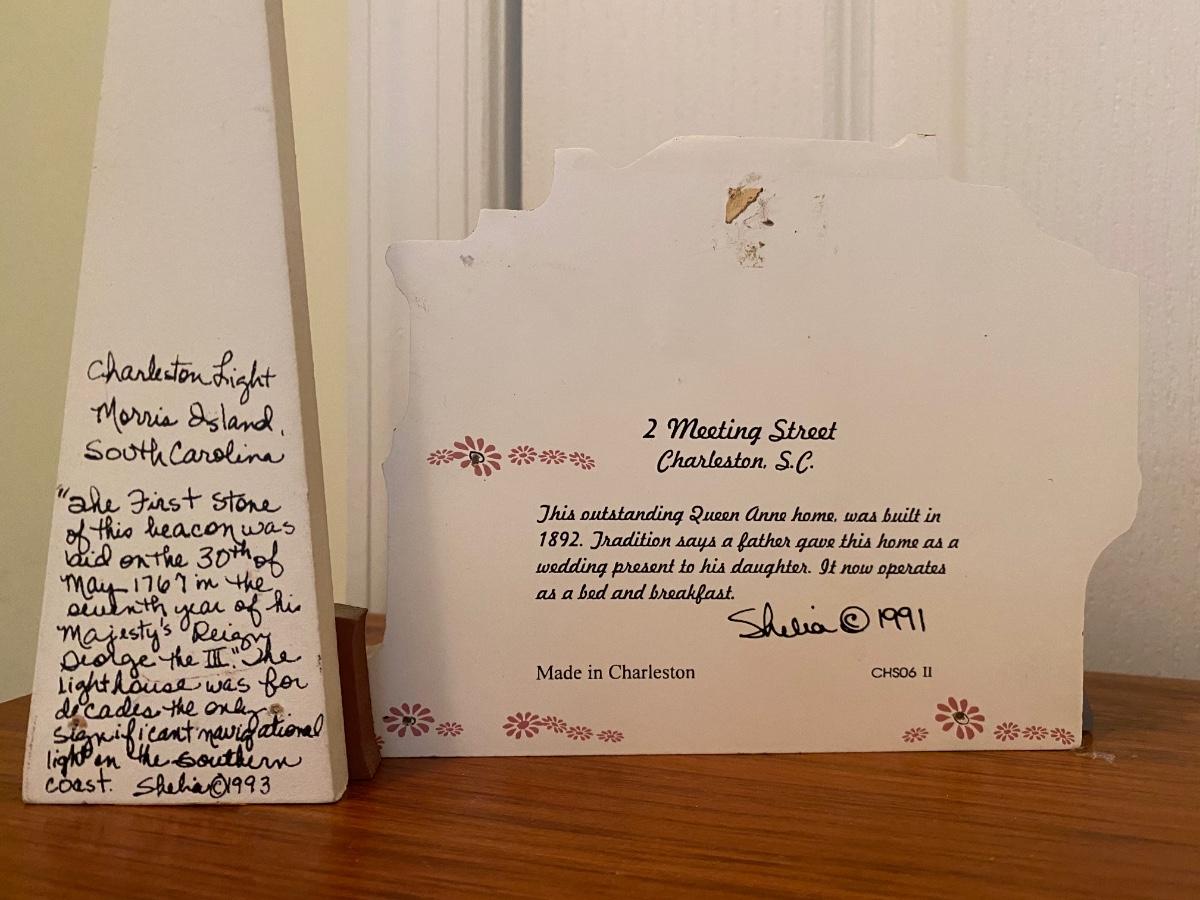 Charleston Light
Morris Island,
South Carolina
"The First Stone
of this beacon was
laid on the 30th of
May 1767 in the
seventh year of his
Majesty's Reign
George the III." The
Lighthouse was for
decades the only
significant navigational
light on the southern
coast. Shelia © 1993
2 Meeting Street
Charleston, S.C.
This outstanding Queen Anne home, was built in
1892. Tradition says a father gave this home as a
wedding present to his daughter. It now operates
as a bed and breakfast.
Shelia © 1991
Made in Charleston
CHS06 II